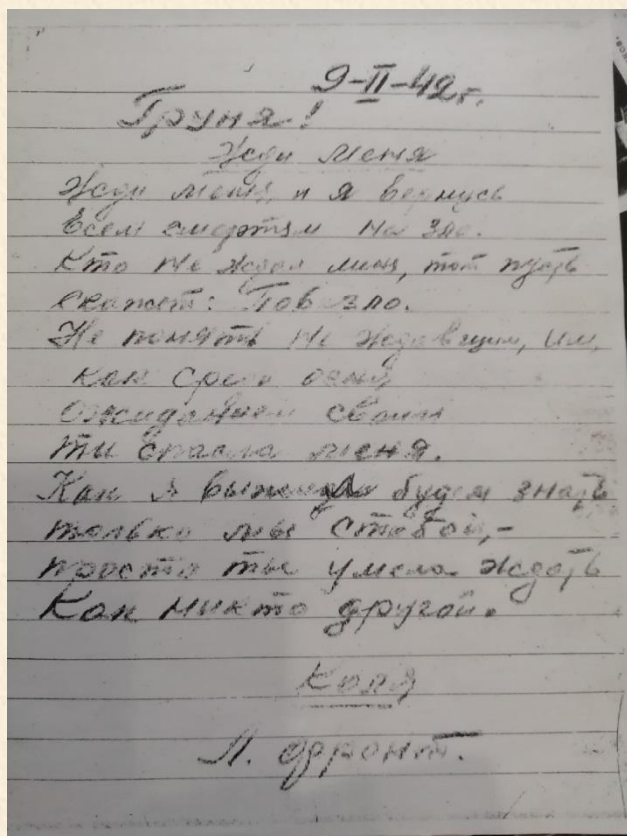 9-II-42г.
Груня!
Жди меня
Жди меня и я вернусь
всем смертям на зло.
Кто не ждал меня, тот пусть
скажет: Повезло.
Не понять не ждавшим, им,
как среди огня
Ожиданием своим
ты спасла меня.
Как я выжил будем знать
только мы стобой,-
просто ты умела ждать
Как никто другой.
Коля
Л. фронт.